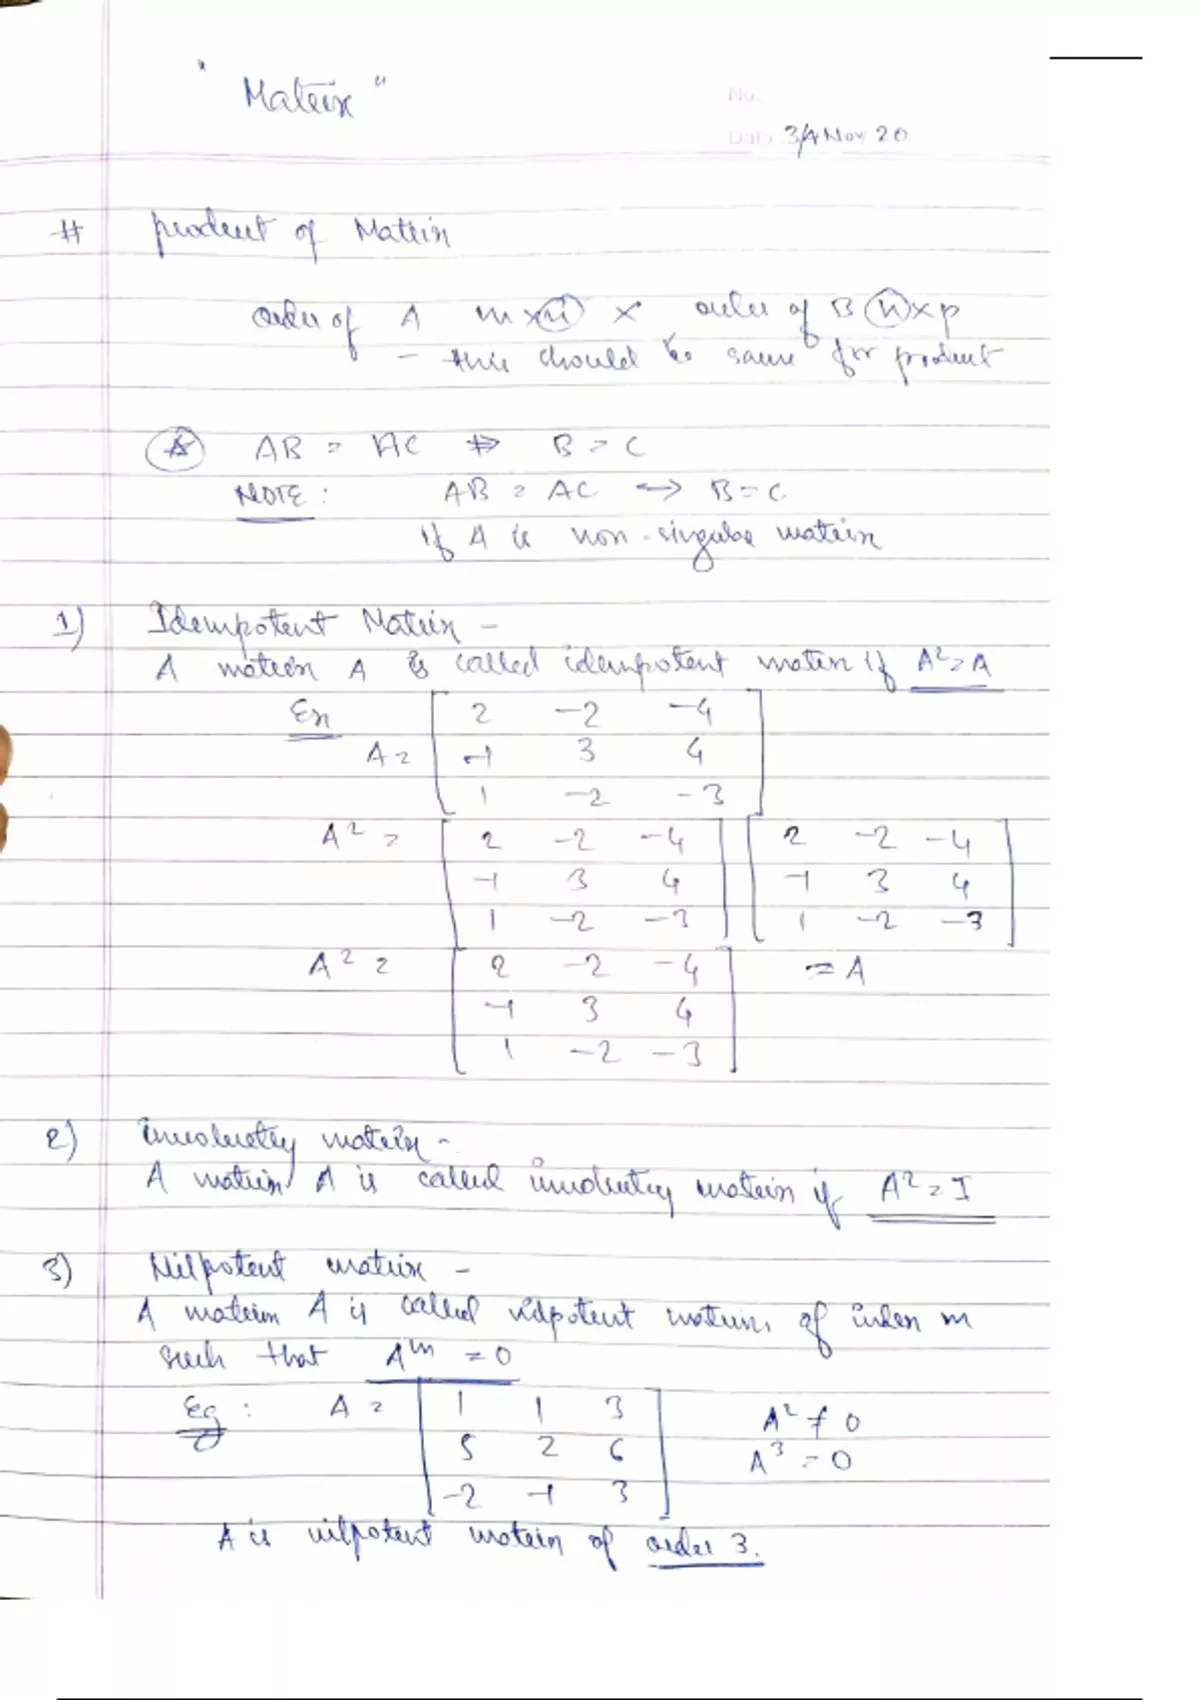 " Matrix "
No.
Date 3/4 Nov 20
# product of Matrix
order of A m×n × order of B n×p
- this should be same for product
AB = AC ⇏ B = C
NOTE: AB = AC ↔ B=C
if A is non-singular matrix
1) Idempotent Matrix -
A matrix A is called idempotent matrix if A²=A
Ex
A = [ 2 -2 -4
-1 3 4
1 -2 -3 ]
A² = [ 2 -2 -4 ] [ 2 -2 -4 ]
-1 3 4 -1 3 4
1 -2 -3 1 -2 -3
A² = [ 2 -2 -4 ] = A
-1 3 4
1 -2 -3
2) involuctry matrix -
A matrix A is called involuctry matrix if A²=I
3) Nilpotent matrix -
A matrix A is called nilpotent matrix, of index m
such that Aᵐ = 0
Eg: A = [ 1 1 3 ] A² ≠ 0
5 2 6 A³ = 0
-2 -1 3
A is nilpotent matrix of order 3.